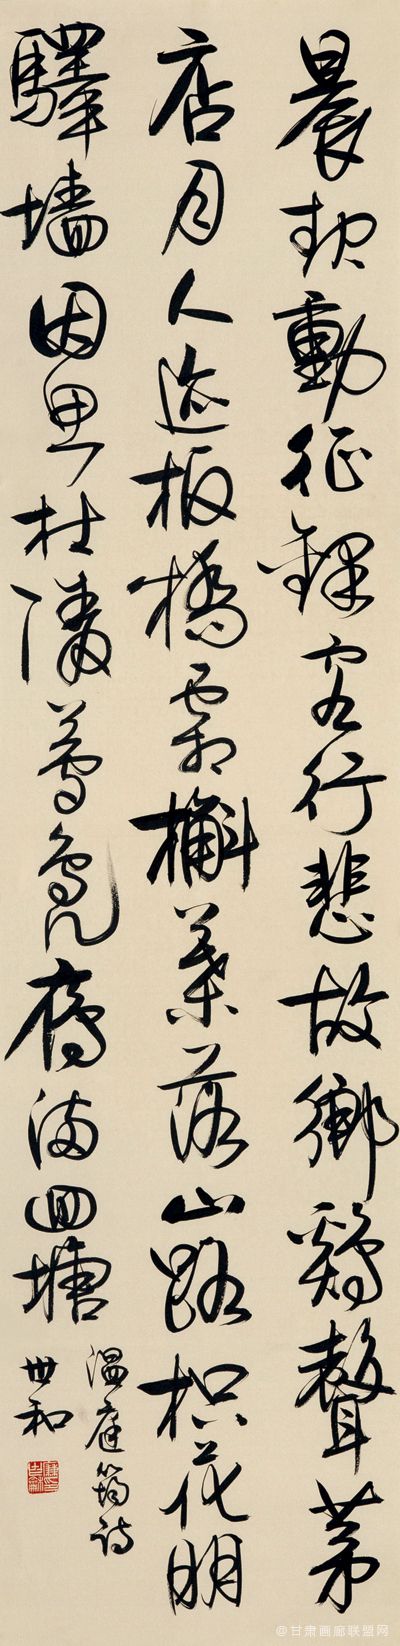 晨起動征鐸客行悲故鄉鷄聲茅
店月人迹板橋霜槲葉落山路枳花明
驛墻因思杜陵夢鳧鴈滿回塘
温庭筠詩
世和
@甘肃画廊联盟网